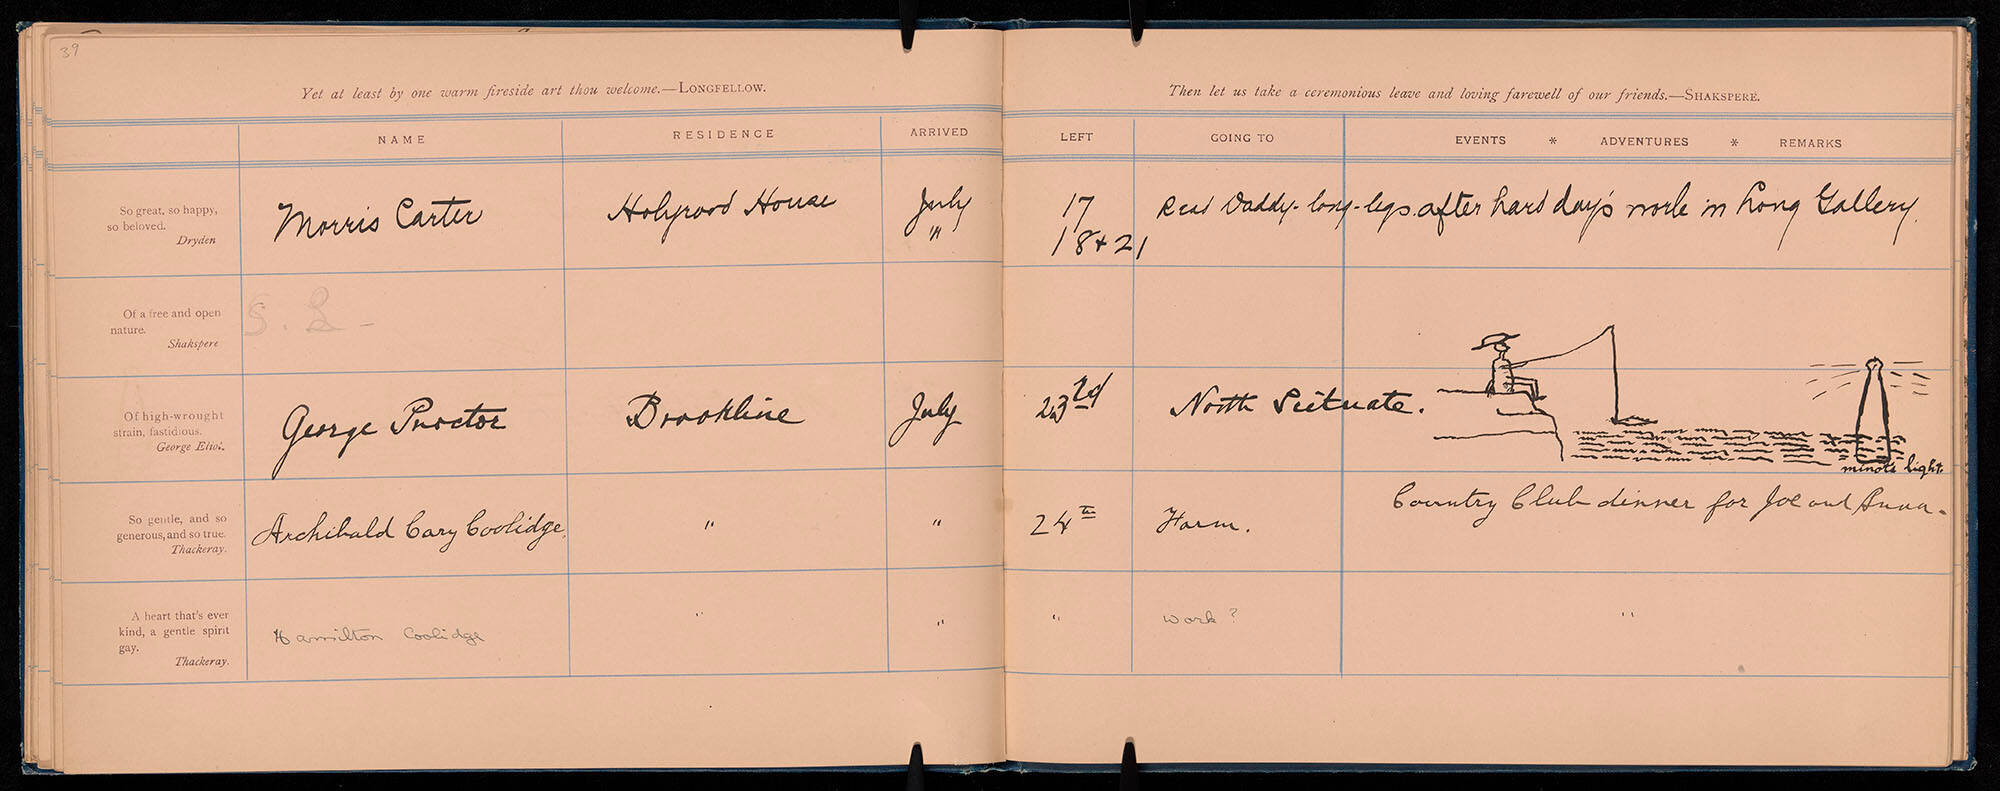 39
Yet at least by one warm fireside art thou welcome.—LONGFELLOW.
Then let us take a ceremonious leave and loving farewell of our friends.—SHAKSPERE.
NAME RESIDENCE ARRIVED LEFT GOING TO EVENTS * ADVENTURES * REMARKS
So great, so happy,
so beloved.
Dryden
Morris Carter Holyrood House July 17 Read Daddy-long-legs after hard day's work in Long Gallery.
" 18 + 21
Of a free and open
nature.
Shakspere
S. L -
Of high-wrought
strain, fastidious.
George Eliot.
George Proctor Brookline July 23rd North Scituate.
minot's light.
So gentle, and so
generous, and so true.
Thackeray.
Archibald Cary Coolidge. " " 24th Farm. Country Club dinner for Joe and Anna.
A heart that's ever
kind, a gentle spirit
gay.
Thackeray.
Hamilton Coolidge " " " work? "